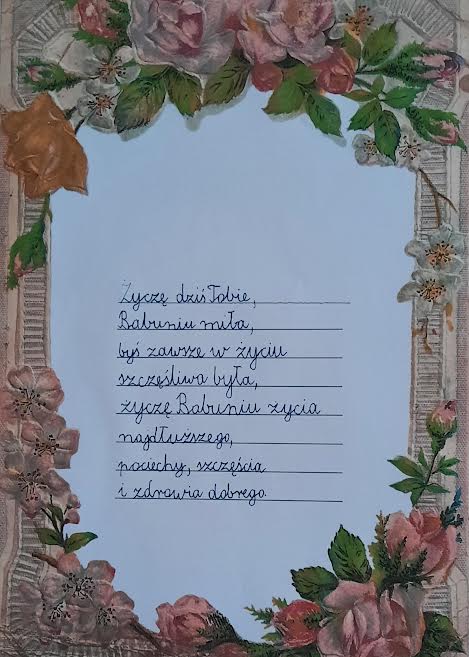 Życzę dziś Tobie,
Babuniu miła,
byś zawsze w życiu
szczęśliwa była,
życzę Babuniu życia
najdłuższego,
pociechy, szczęścia
i zdrowia dobrego.